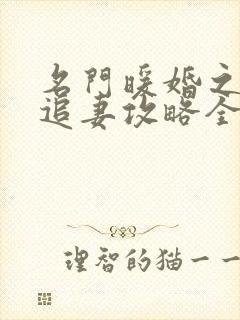 名門暖婚之
追妻攻略全
理智的猫一一